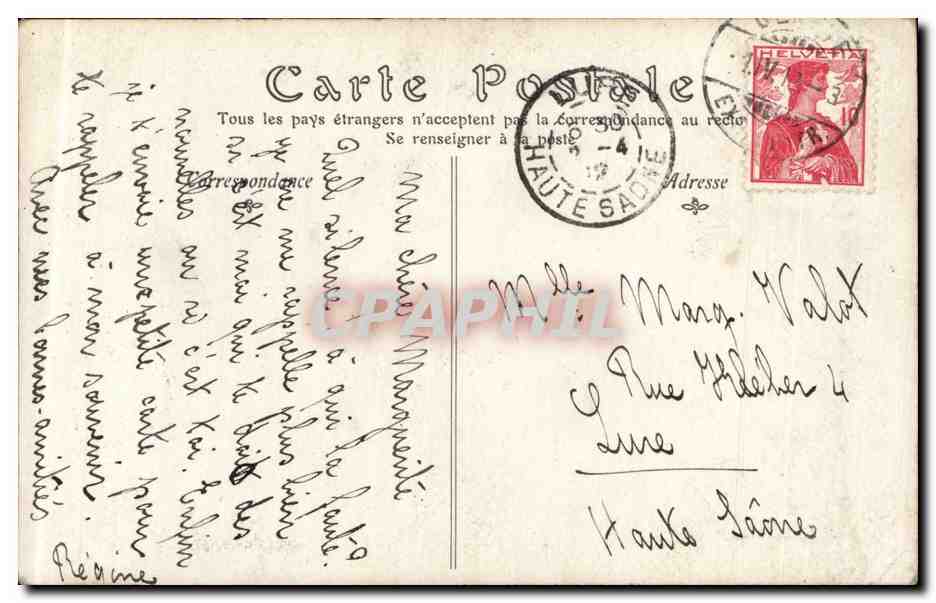 Carte Postale
Tous les pays étrangers n'acceptent pas la correspondance au recto
Se renseigner à la poste
Correspondance
Adresse
HELVETIA
10
LURE
6 30
5 - 4
12
HAUTE SAÔNE
CPAPHIL
Ma chère Marguerite
Quel silence, à qui la faute?
je ne me rappelle plus bien
si c'est moi qui te dois des
nouvelles ou si c'est toi. Enfin
je t'envoie une petite carte pour
te rappeler à mon souvenir.
Avec mes bonnes amitiés
Régine
Mlle Marg. Valot
Rue Kléber 4
Lure
Haute Saône